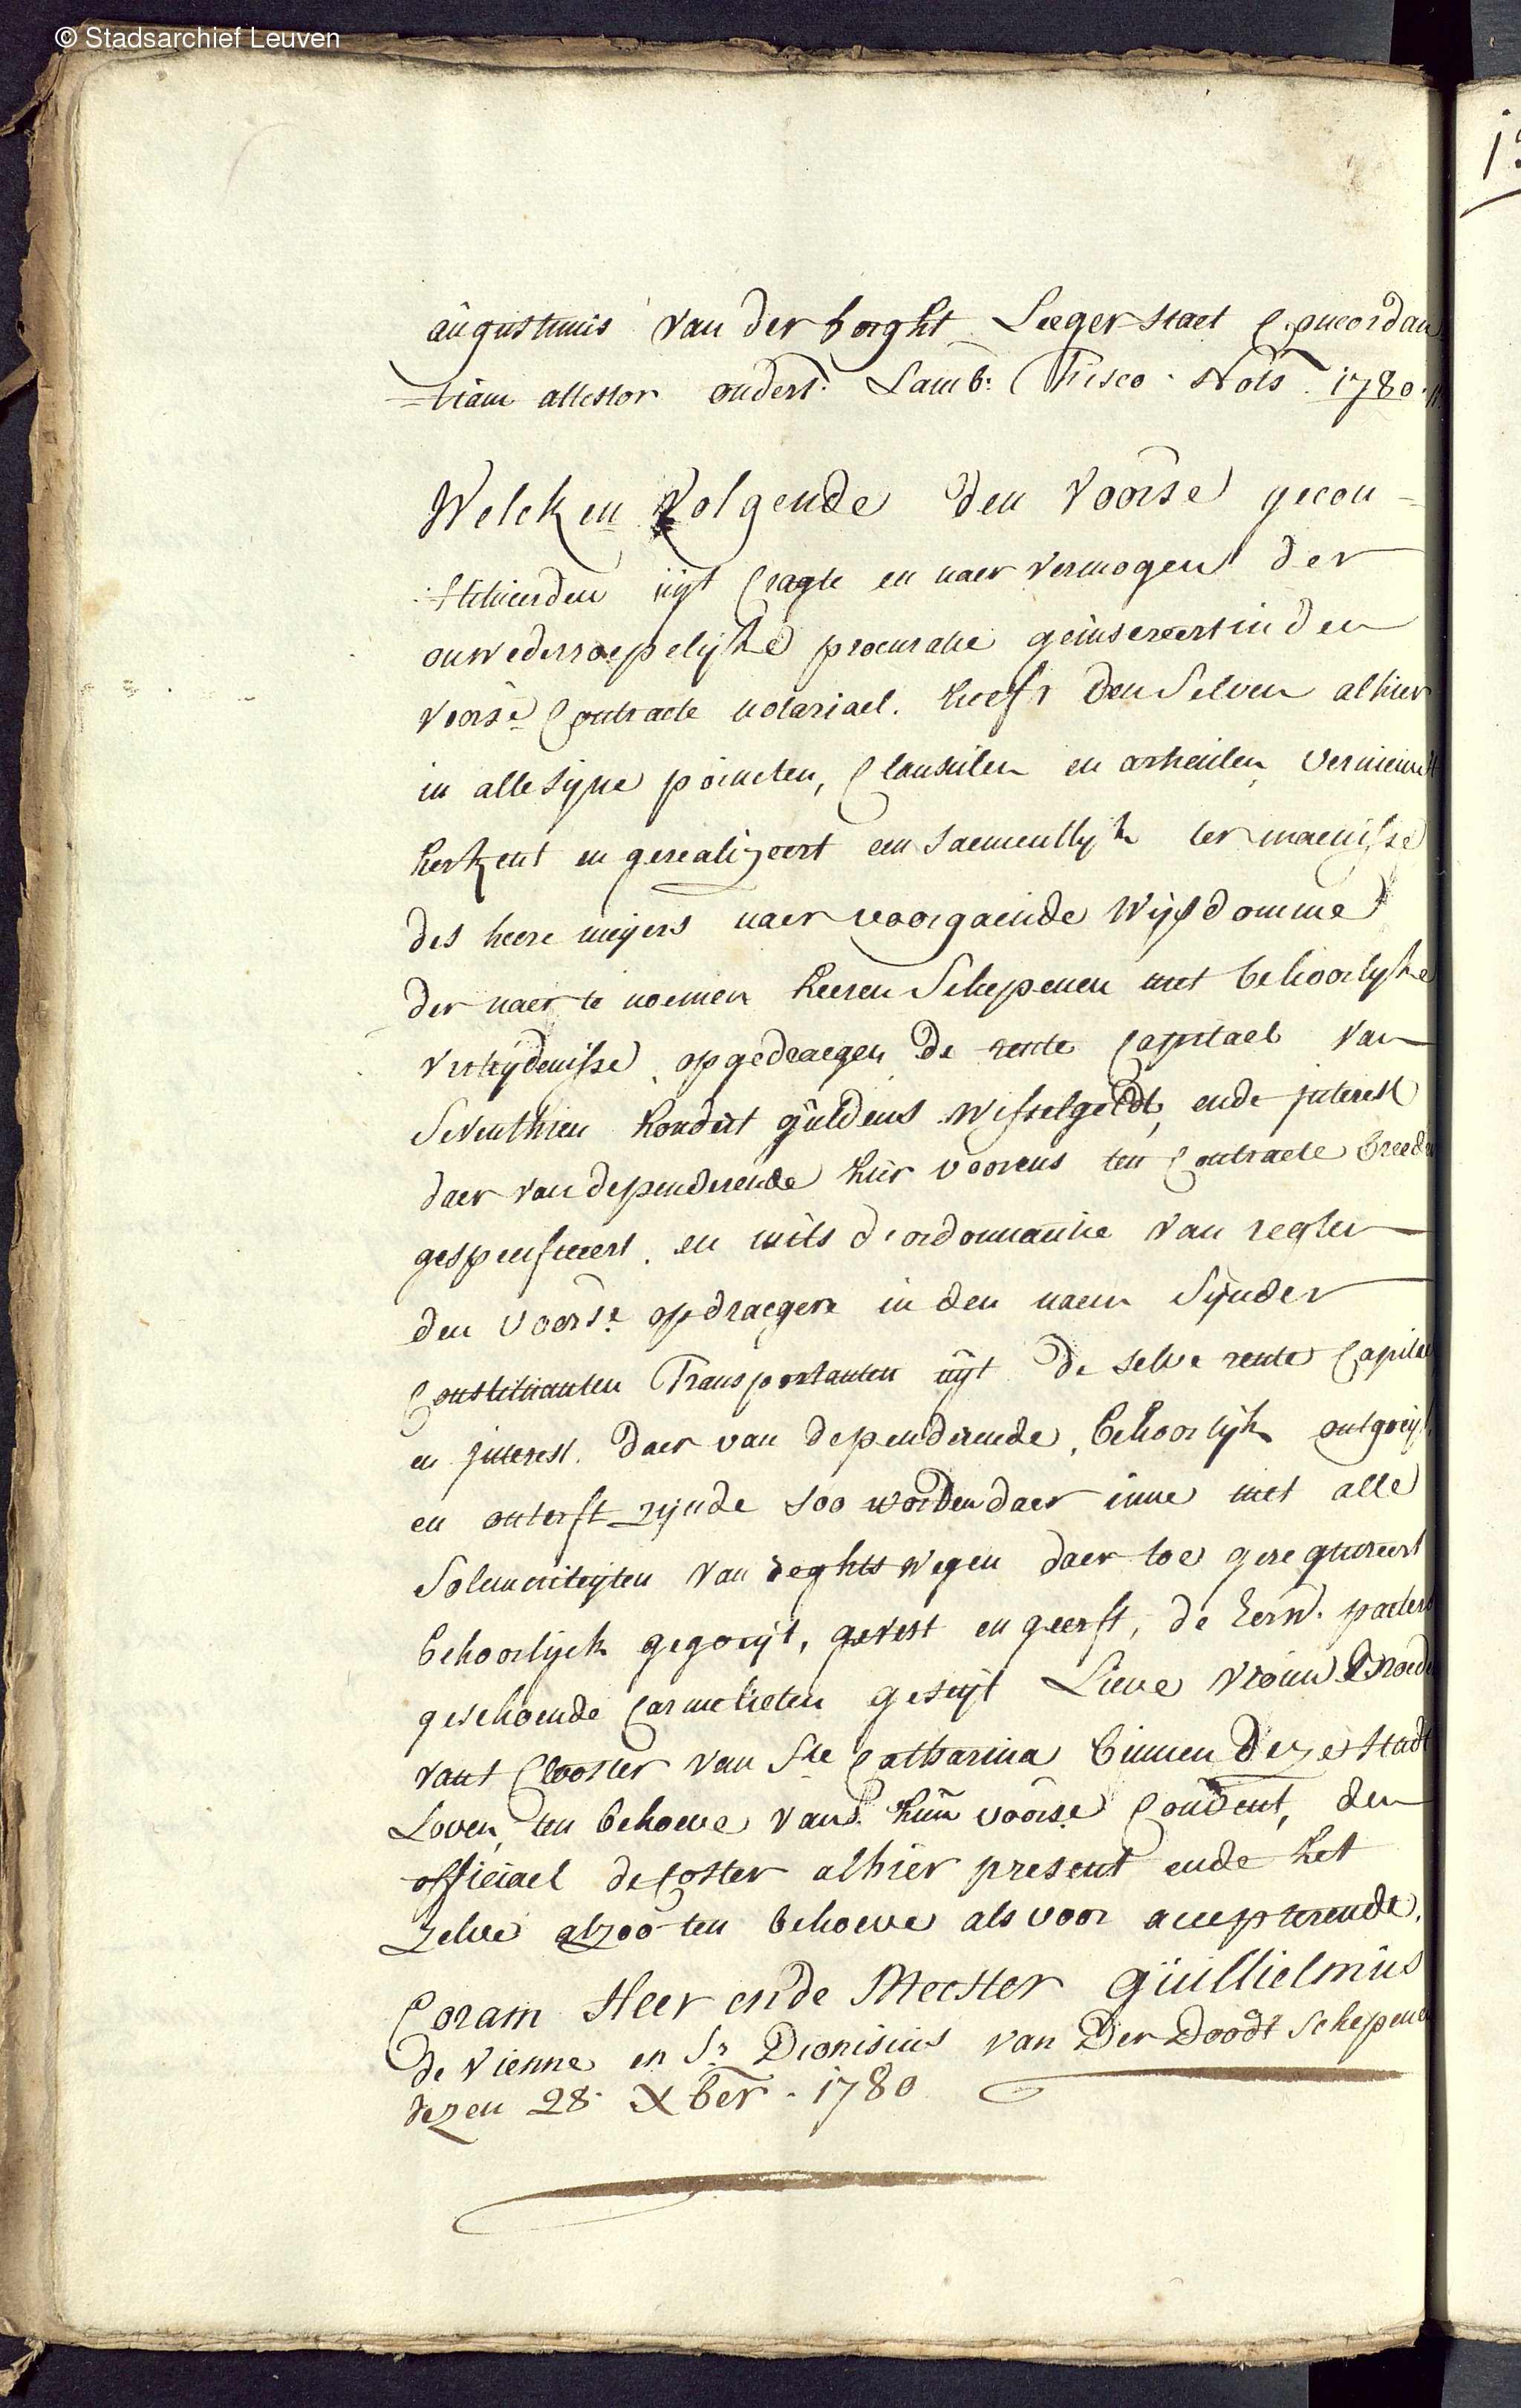 © Stadsarchief Leuven
augustinus van der borght Leeger staet Concordan
=tiam attestor onderst: Lamb: Thisco Nots 1780
Welcken volgende den voorse gecon=
stitueerden uijt Cragte en naer vermogen der
onwederroepelijke procuratie geinsereert in den
voorse Contracte notariael. heeft den selven alhier
in alle sijne poincten, Clausulen en articulen vernieuwt
herkent en gerealizeert en saementlijk ter maenisse
des heere meijers naer voorgaende wijsdomme
der naer te noemen heeren Schepenen met behoorlijke
vertijdenisse opgedraegen de rente Capitael van
seventhien hondert guldens wisselgeldt, ende interest
daer van dependerende hier voorens ten Contracte breeder
gespecificeert. en mits d'ordonnantie van regten
den voorse opdraegere in den naem sijnder
Constituanten Transportanten uijt de selve rente Capitael
en interest. daer van dependerende, behoorlijk ontgoeijt
en onterft zijnde soo worden daer inne met alle
solemniteijten van reghts wegen daer toe gerequireert
behoorlijck gegoeijt, gevest en geerft, de Eerw. paeters
geschoende Carmelieten geseijt Lieve vrouw Broeders
vant Clooster van Ste Catharina binnen deze stadt
Loven, ten behoeve van hun voorse Convent, den
officiael de Coster alhier present ende het
zelve alzoo ten behoeve als voor accepterende.
Coram Heer ende Meester Guillielmus
de Vienne en Sr Dionisius van Der Doodt schepenen
dezen 28 Xber. 1780